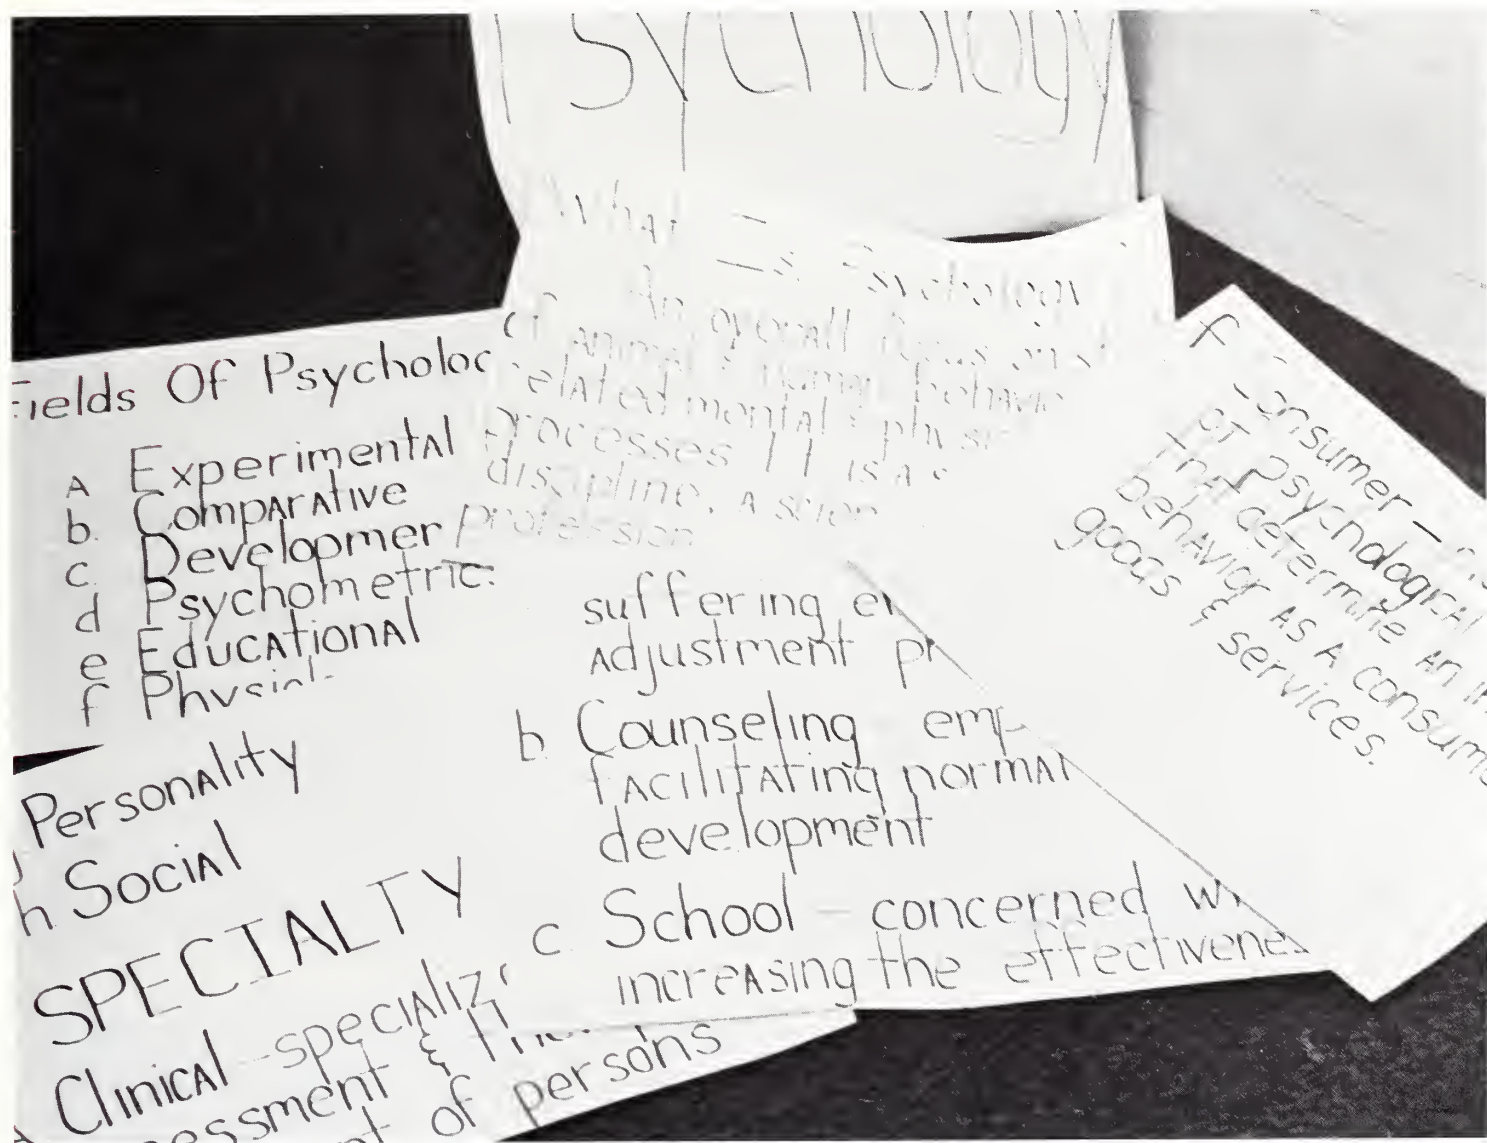 Psychology
What Is Psychology
An overall focus on
of animal & human behavior
related mental & physi
processes It is a
discipline, a scien
profession
Fields Of Psycholog
A Experimental
b. Comparative
c. Developmen
d Psychometric
e Educational
f Physiol
Personality
h Social
SPECIALTY
Clinical - specializ
essment &
of persons
suffering e
Adjustment pr
b Counseling emp
facilitating normal
development
c School - concerned w
increasing the effectivenes
f Consumer -
of Psychological
that determine an in
behavior as a consum
goods & services.